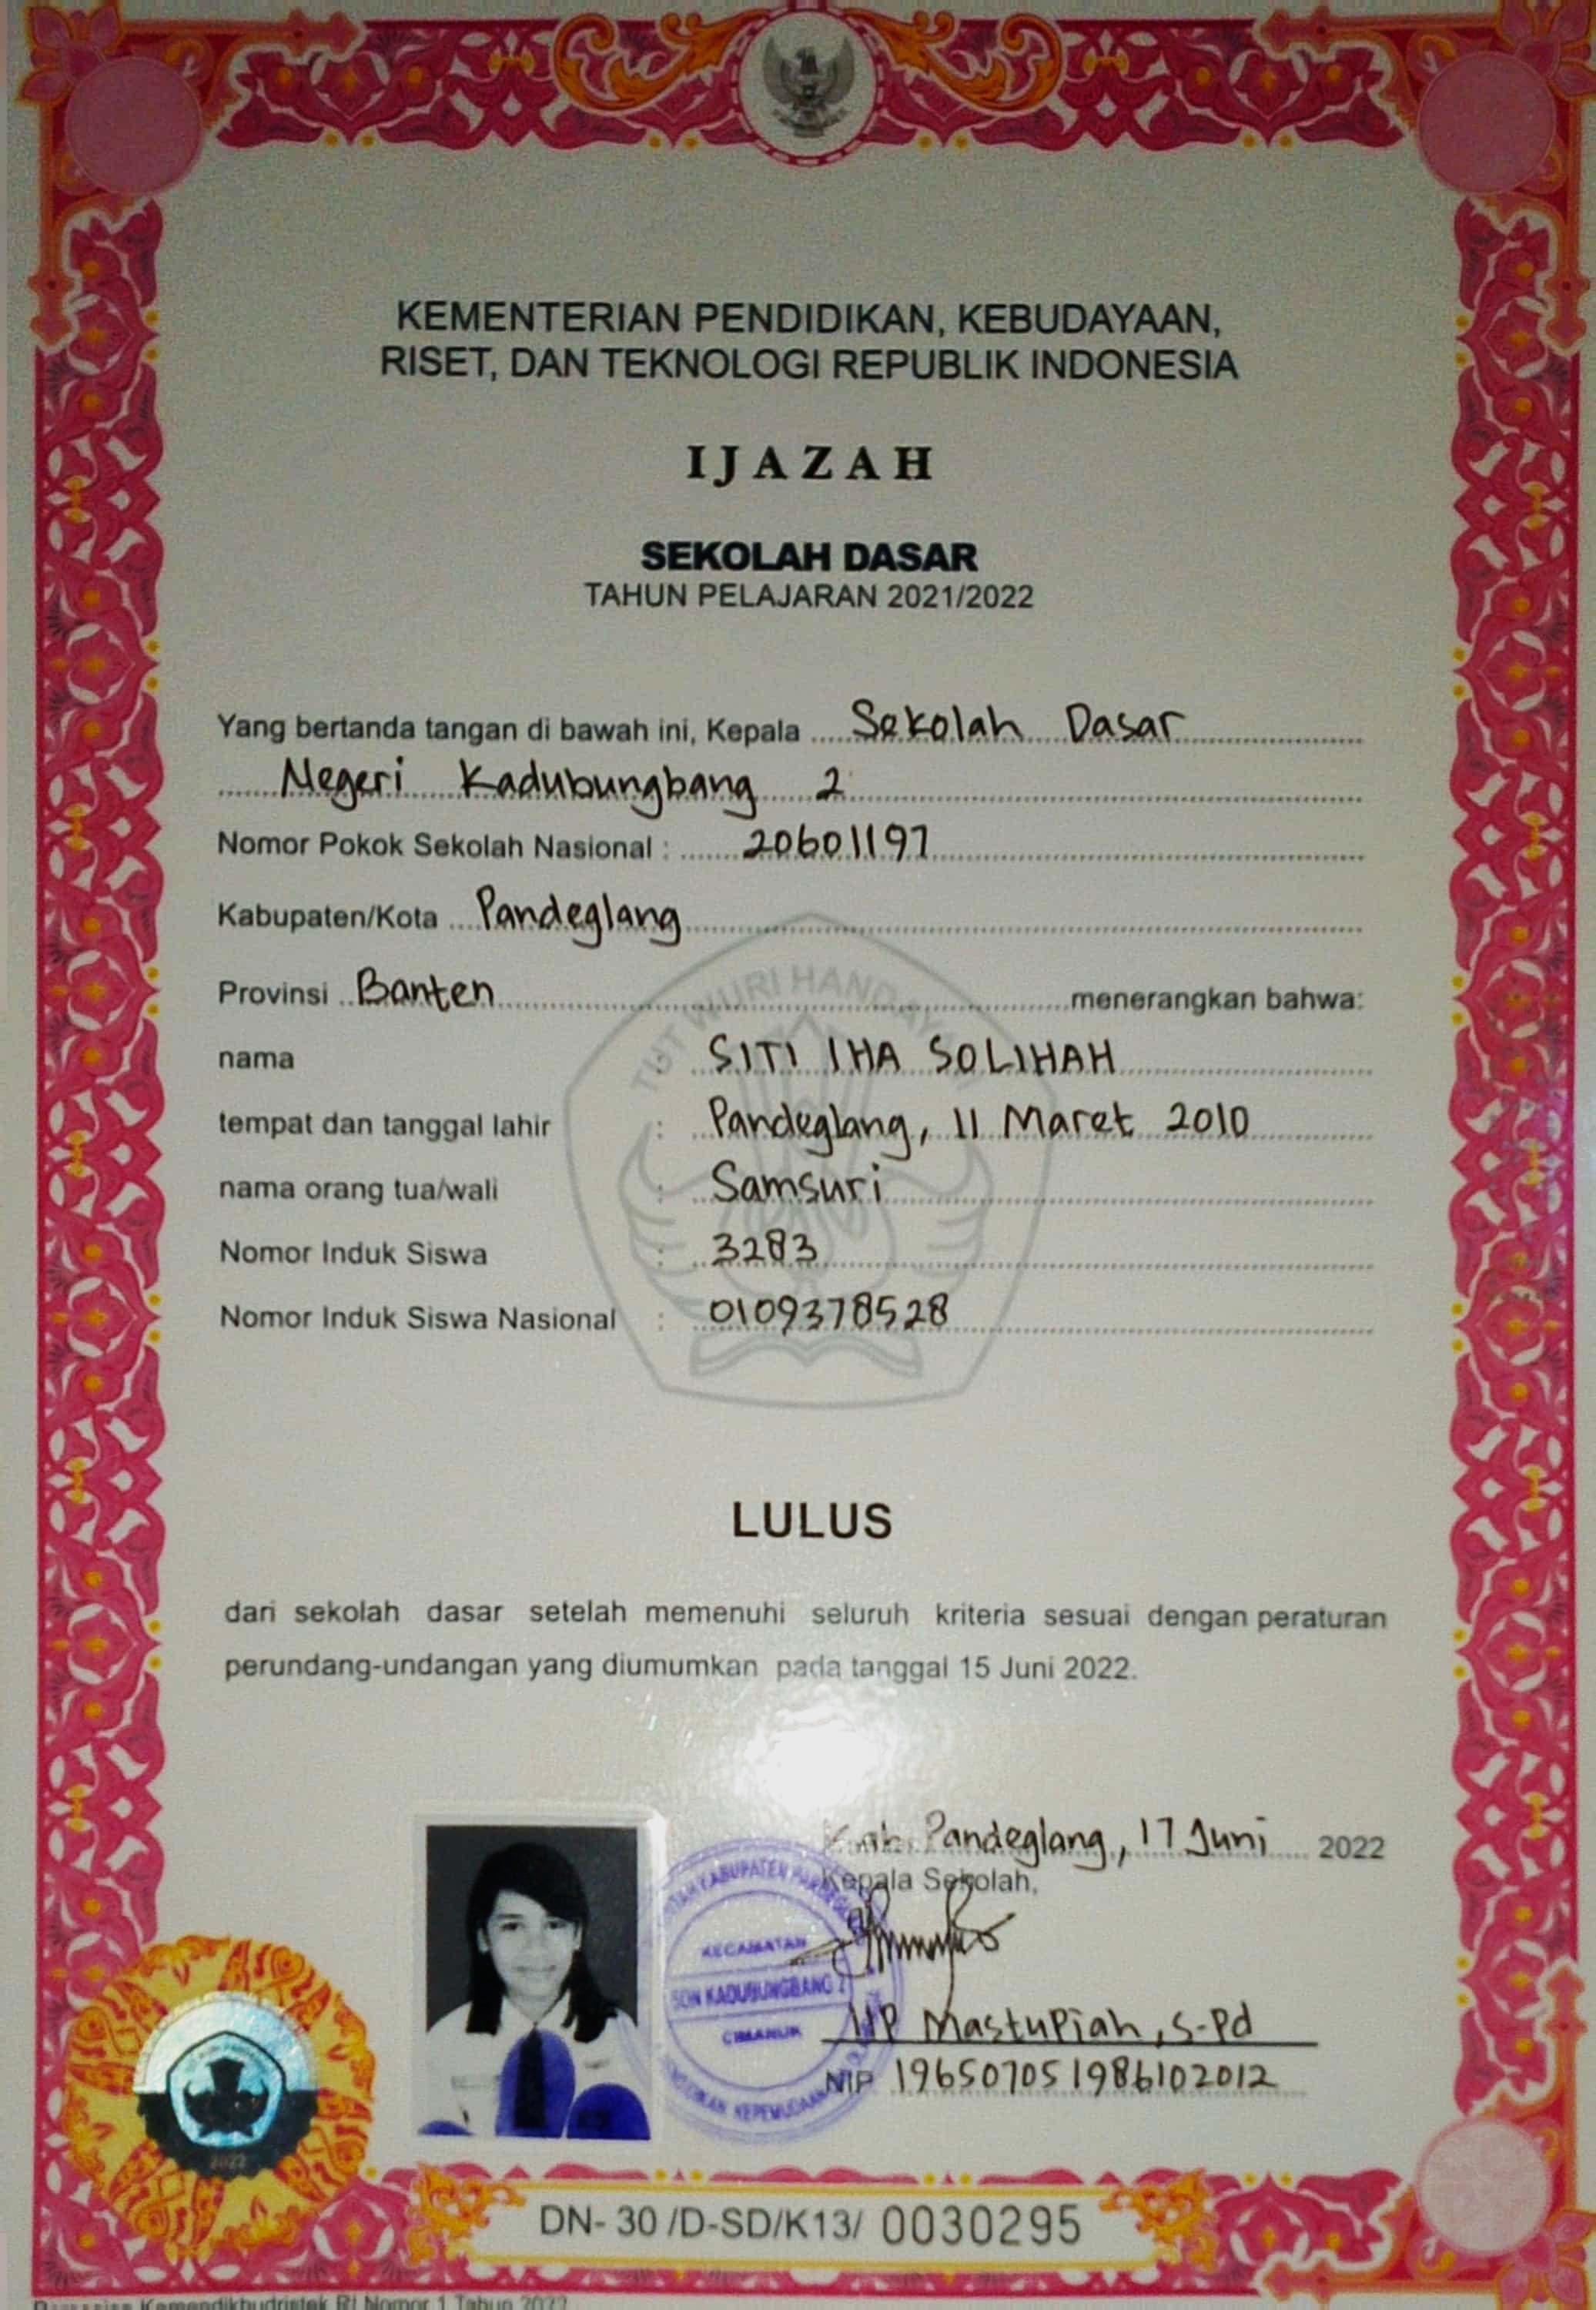 KEMENTERIAN PENDIDIKAN, KEBUDAYAAN,
RISET, DAN TEKNOLOGI REPUBLIK INDONESIA
IJAZAH
SEKOLAH DASAR
TAHUN PELAJARAN 2021/2022
Yang bertanda tangan di bawah ini, Kepala Sekolah Dasar
Negeri Kadubungbang 2
Nomor Pokok Sekolah Nasional : 20601197
Kabupaten/Kota Pandeglang
Provinsi Banten menerangkan bahwa:
nama : SITI IHA SOLIHAH
tempat dan tanggal lahir : Pandeglang, 11 Maret 2010
nama orang tua/wali : Samsuri
Nomor Induk Siswa : 3283
Nomor Induk Siswa Nasional : 0109378528
TUT WURI HANDAYANI
LULUS
dari sekolah dasar setelah memenuhi seluruh kriteria sesuai dengan peraturan
perundang-undangan yang diumumkan pada tanggal 15 Juni 2022.
Kab. Pandeglang, 17 Juni 2022
Kepala Sekolah,
KABUPATEN
KECAMATAN
SDN KADUBUNGBANG 2
CIMANUK
Mastupiah, S.Pd
NIP 196507051986102012
2022
DN- 30 /D-SD/K13/ 0030295
Kemendikbudristek RI Nomor 1 Tahun 2022